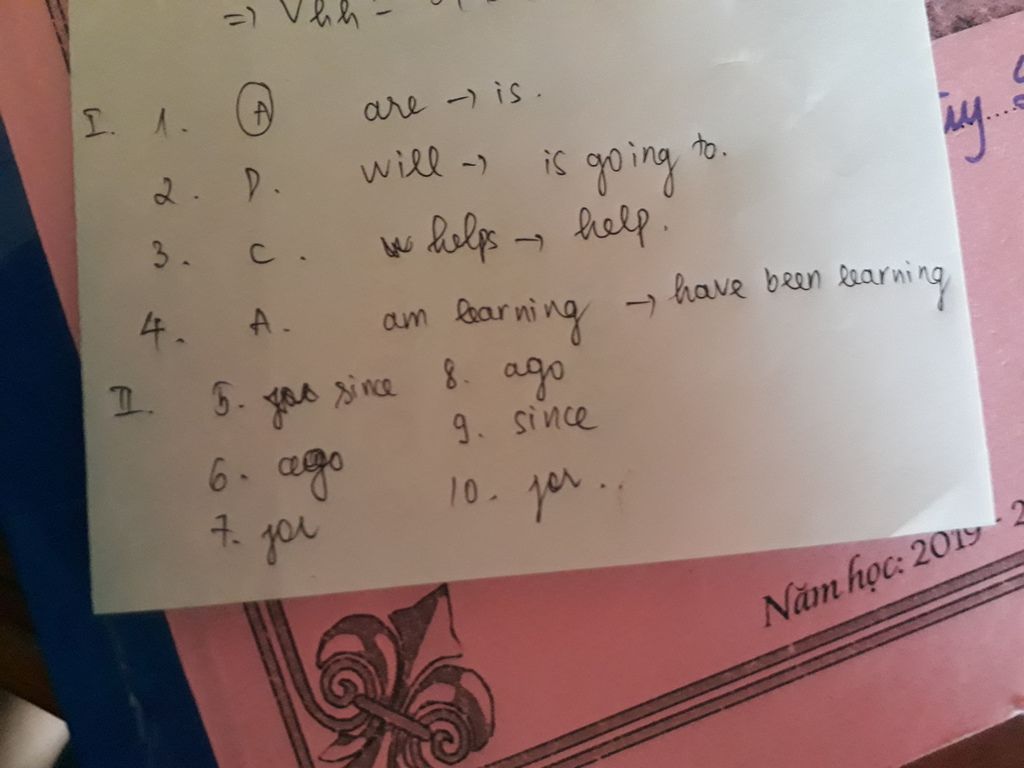 => Vhh =
I. 1. A are → is.
2. D. will → is going to.
3. C. helps → help.
4. A. am learning → have been learning
II. 5. since 8. ago
6. ago 9. since
7. for 10. for..
Năm học: 2019 - 2